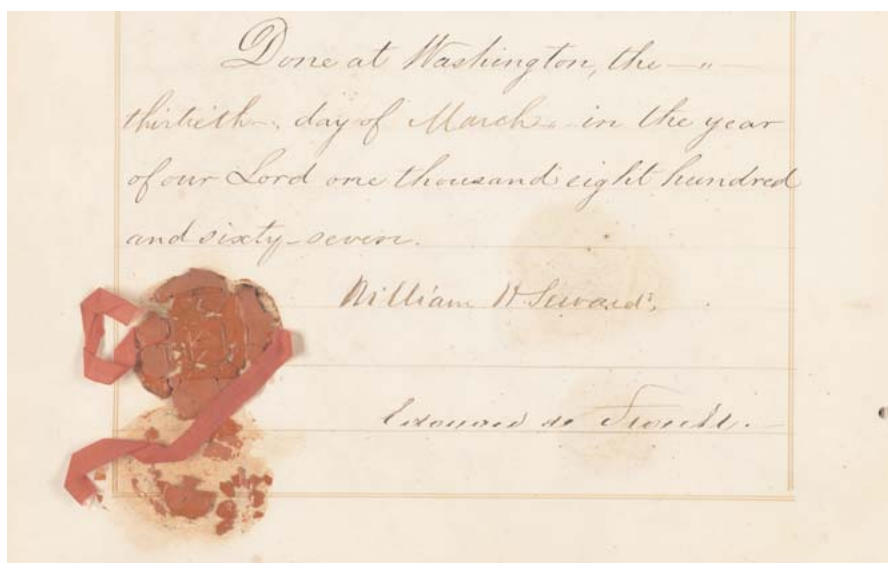 Done at Washington, the — "
thirtieth day of March in the year
of our Lord one thousand eight hundred
and sixty-seven.
William H Seward
Edouard de Stoeckl.